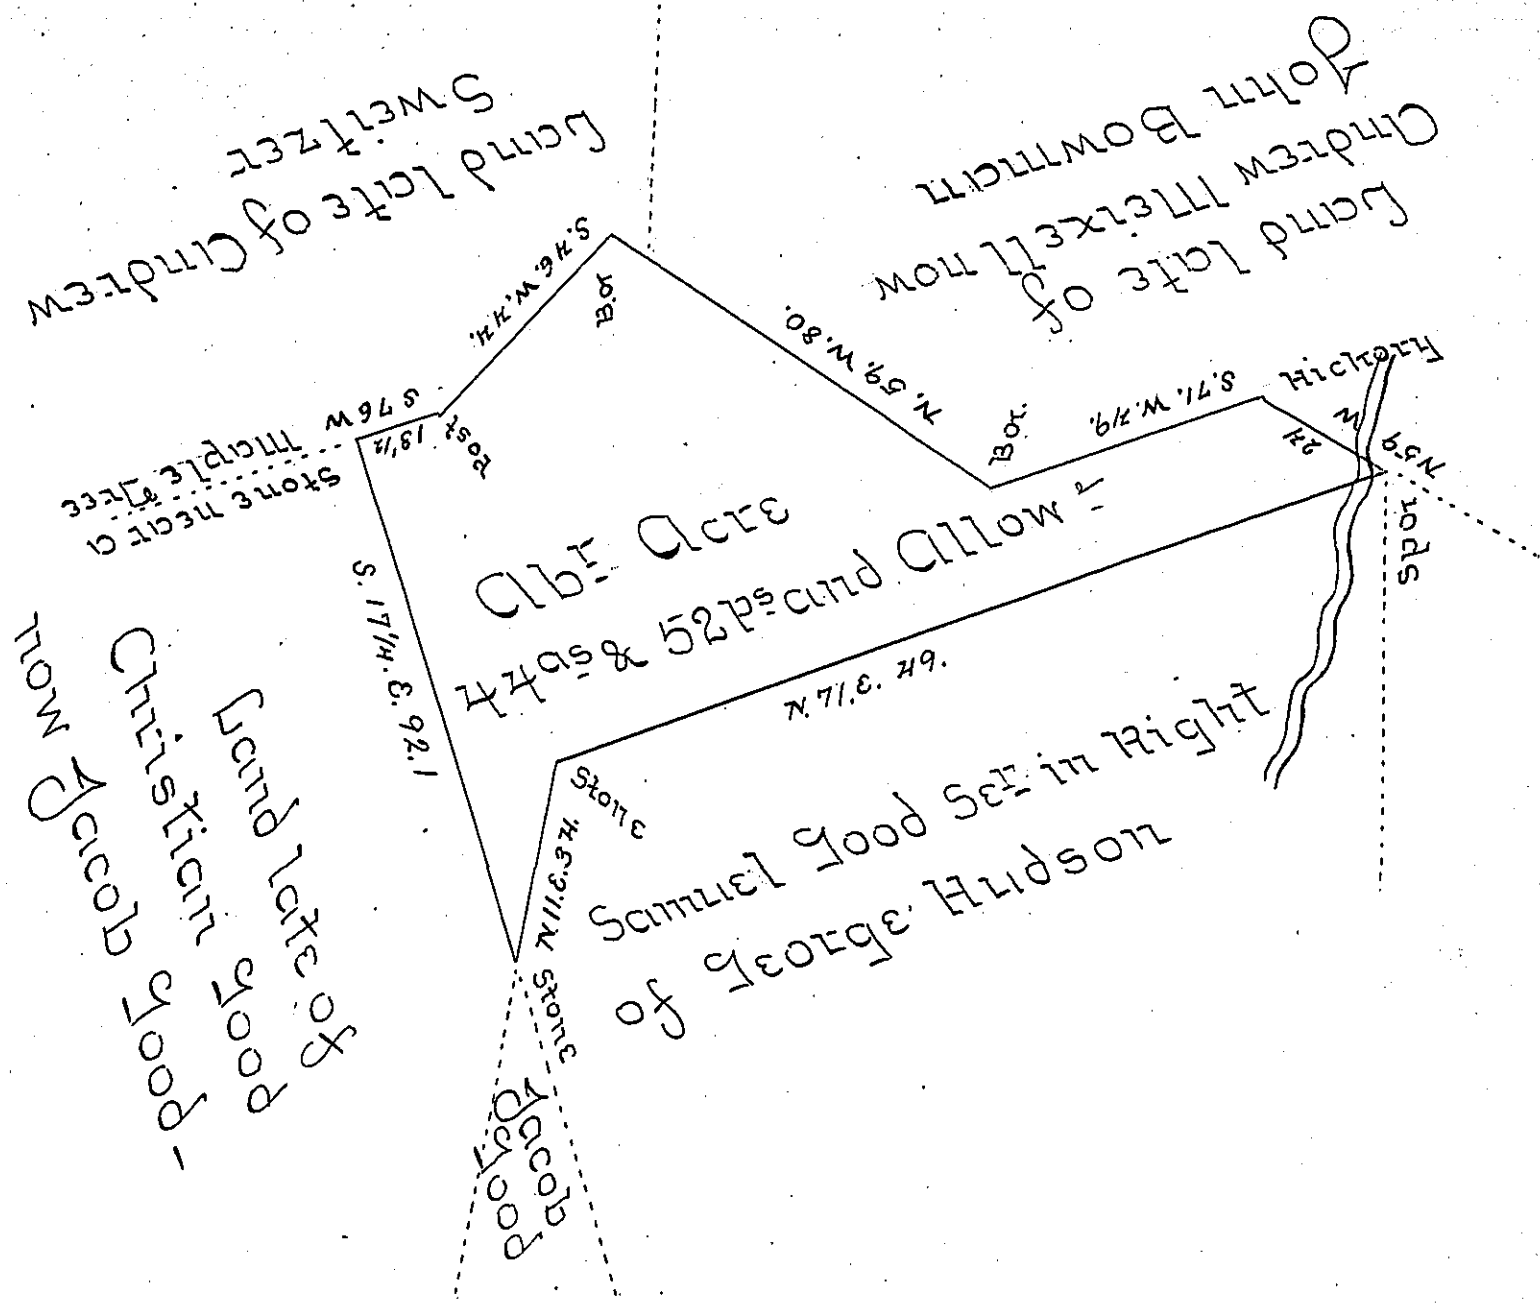 Land late of Andrew
Sweitzer
Land late of
Andrew Meixell now
John Bowman
S. 46. W. 44.
Bor
N. 59. W. 80.
Bor.
S. 71. W. 49.
Hickory
N 59
W
24
spor
S 76 W
13 1/2
Post
Stone near a
Maple Tree
Abt Acre
44as & 52ps and Allow
S. 17 1/4. E. 92.1
N. 71. E. 49.
Stone
N. 11. E. 34.
Stone
Samuel Good Ser in Right
of George Hudson
Land late of
Christian Good
now Jacob Good -
Jacob
Good